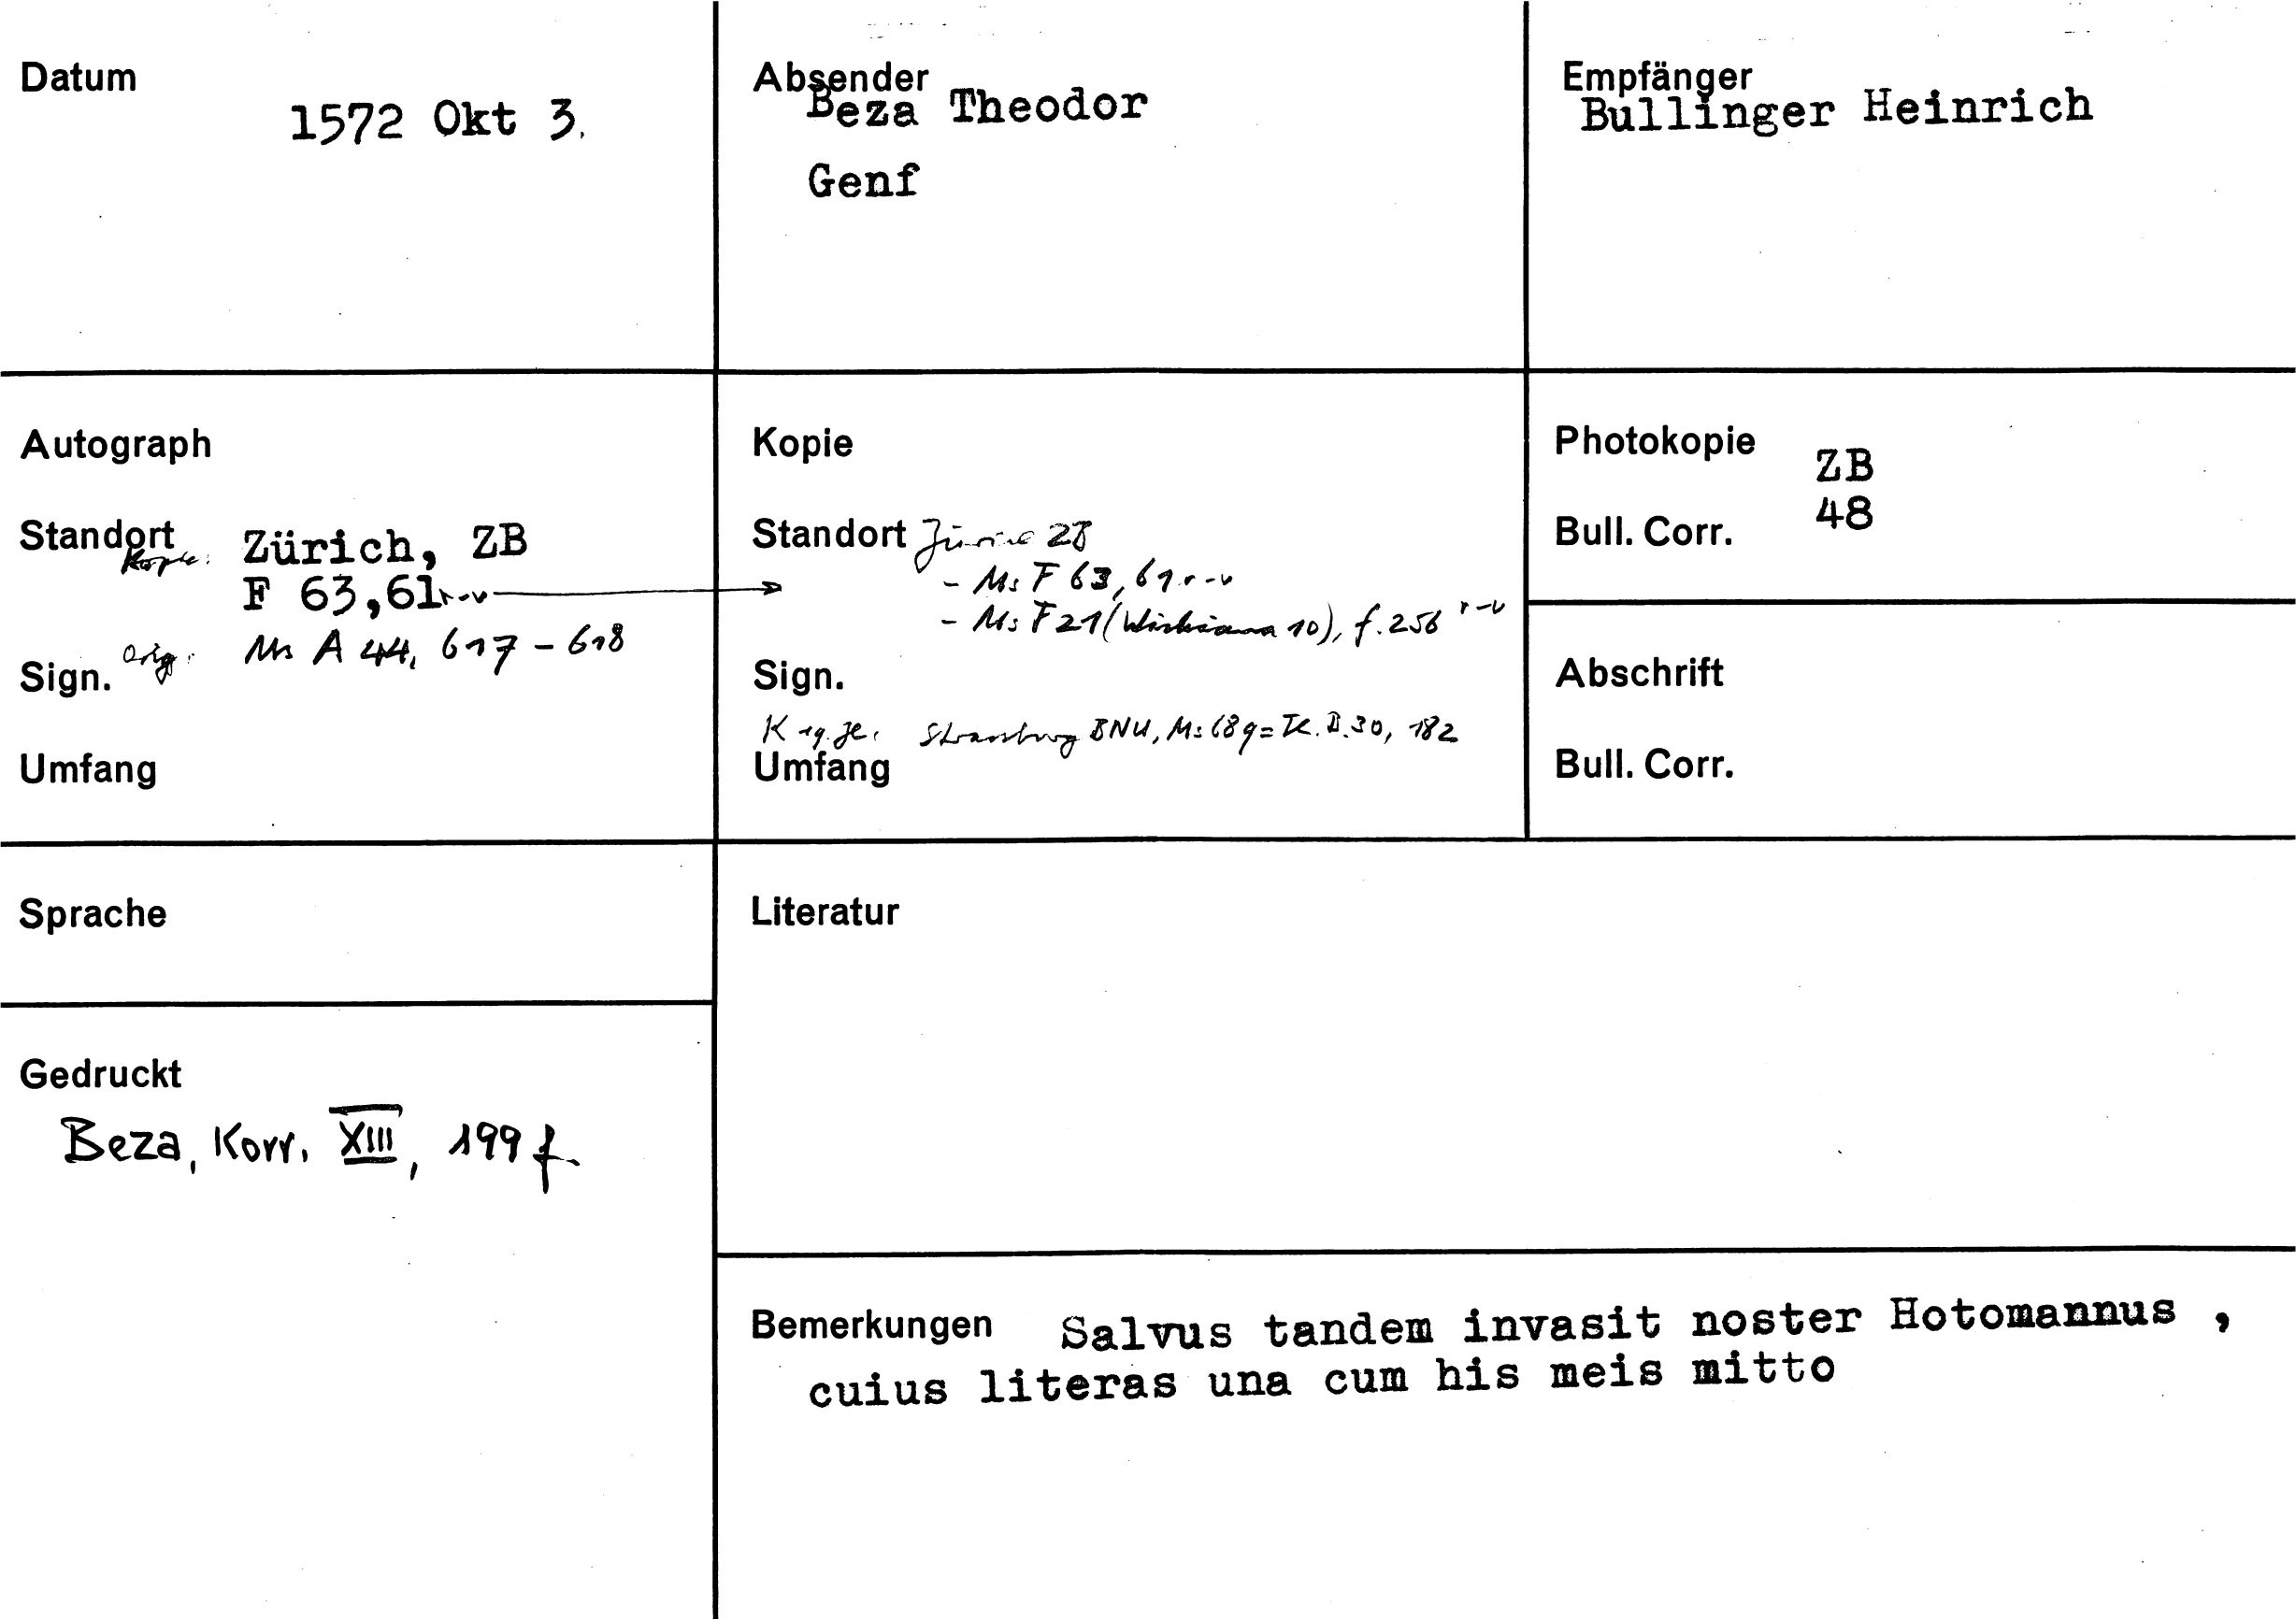 Datum
1572 Okt 3.
Absender
Beza Theodor
Genf
Empfänger
Bullinger Heinrich
Autograph
Standort Zürich, ZB
Kopie:
F 63,61r-v
Sign. Orig: Ms A 44, 617-618
Umfang
Kopie
Standort Zürich ZB
- Ms F 63, 61 r-v
- Ms F 21 (Wickiana 10), f. 256 r-v
Sign.
Strassburg BNU, Ms 689 = II.30, 182
Umfang
Photokopie ZB
Bull. Corr. 48
Abschrift
Bull. Corr.
Sprache
Literatur
Gedruckt
Beza, Korr. XIII, 199 f.
Bemerkungen Salvus tandem invasit noster Hotomannus ,
cuius literas una cum his meis mitto